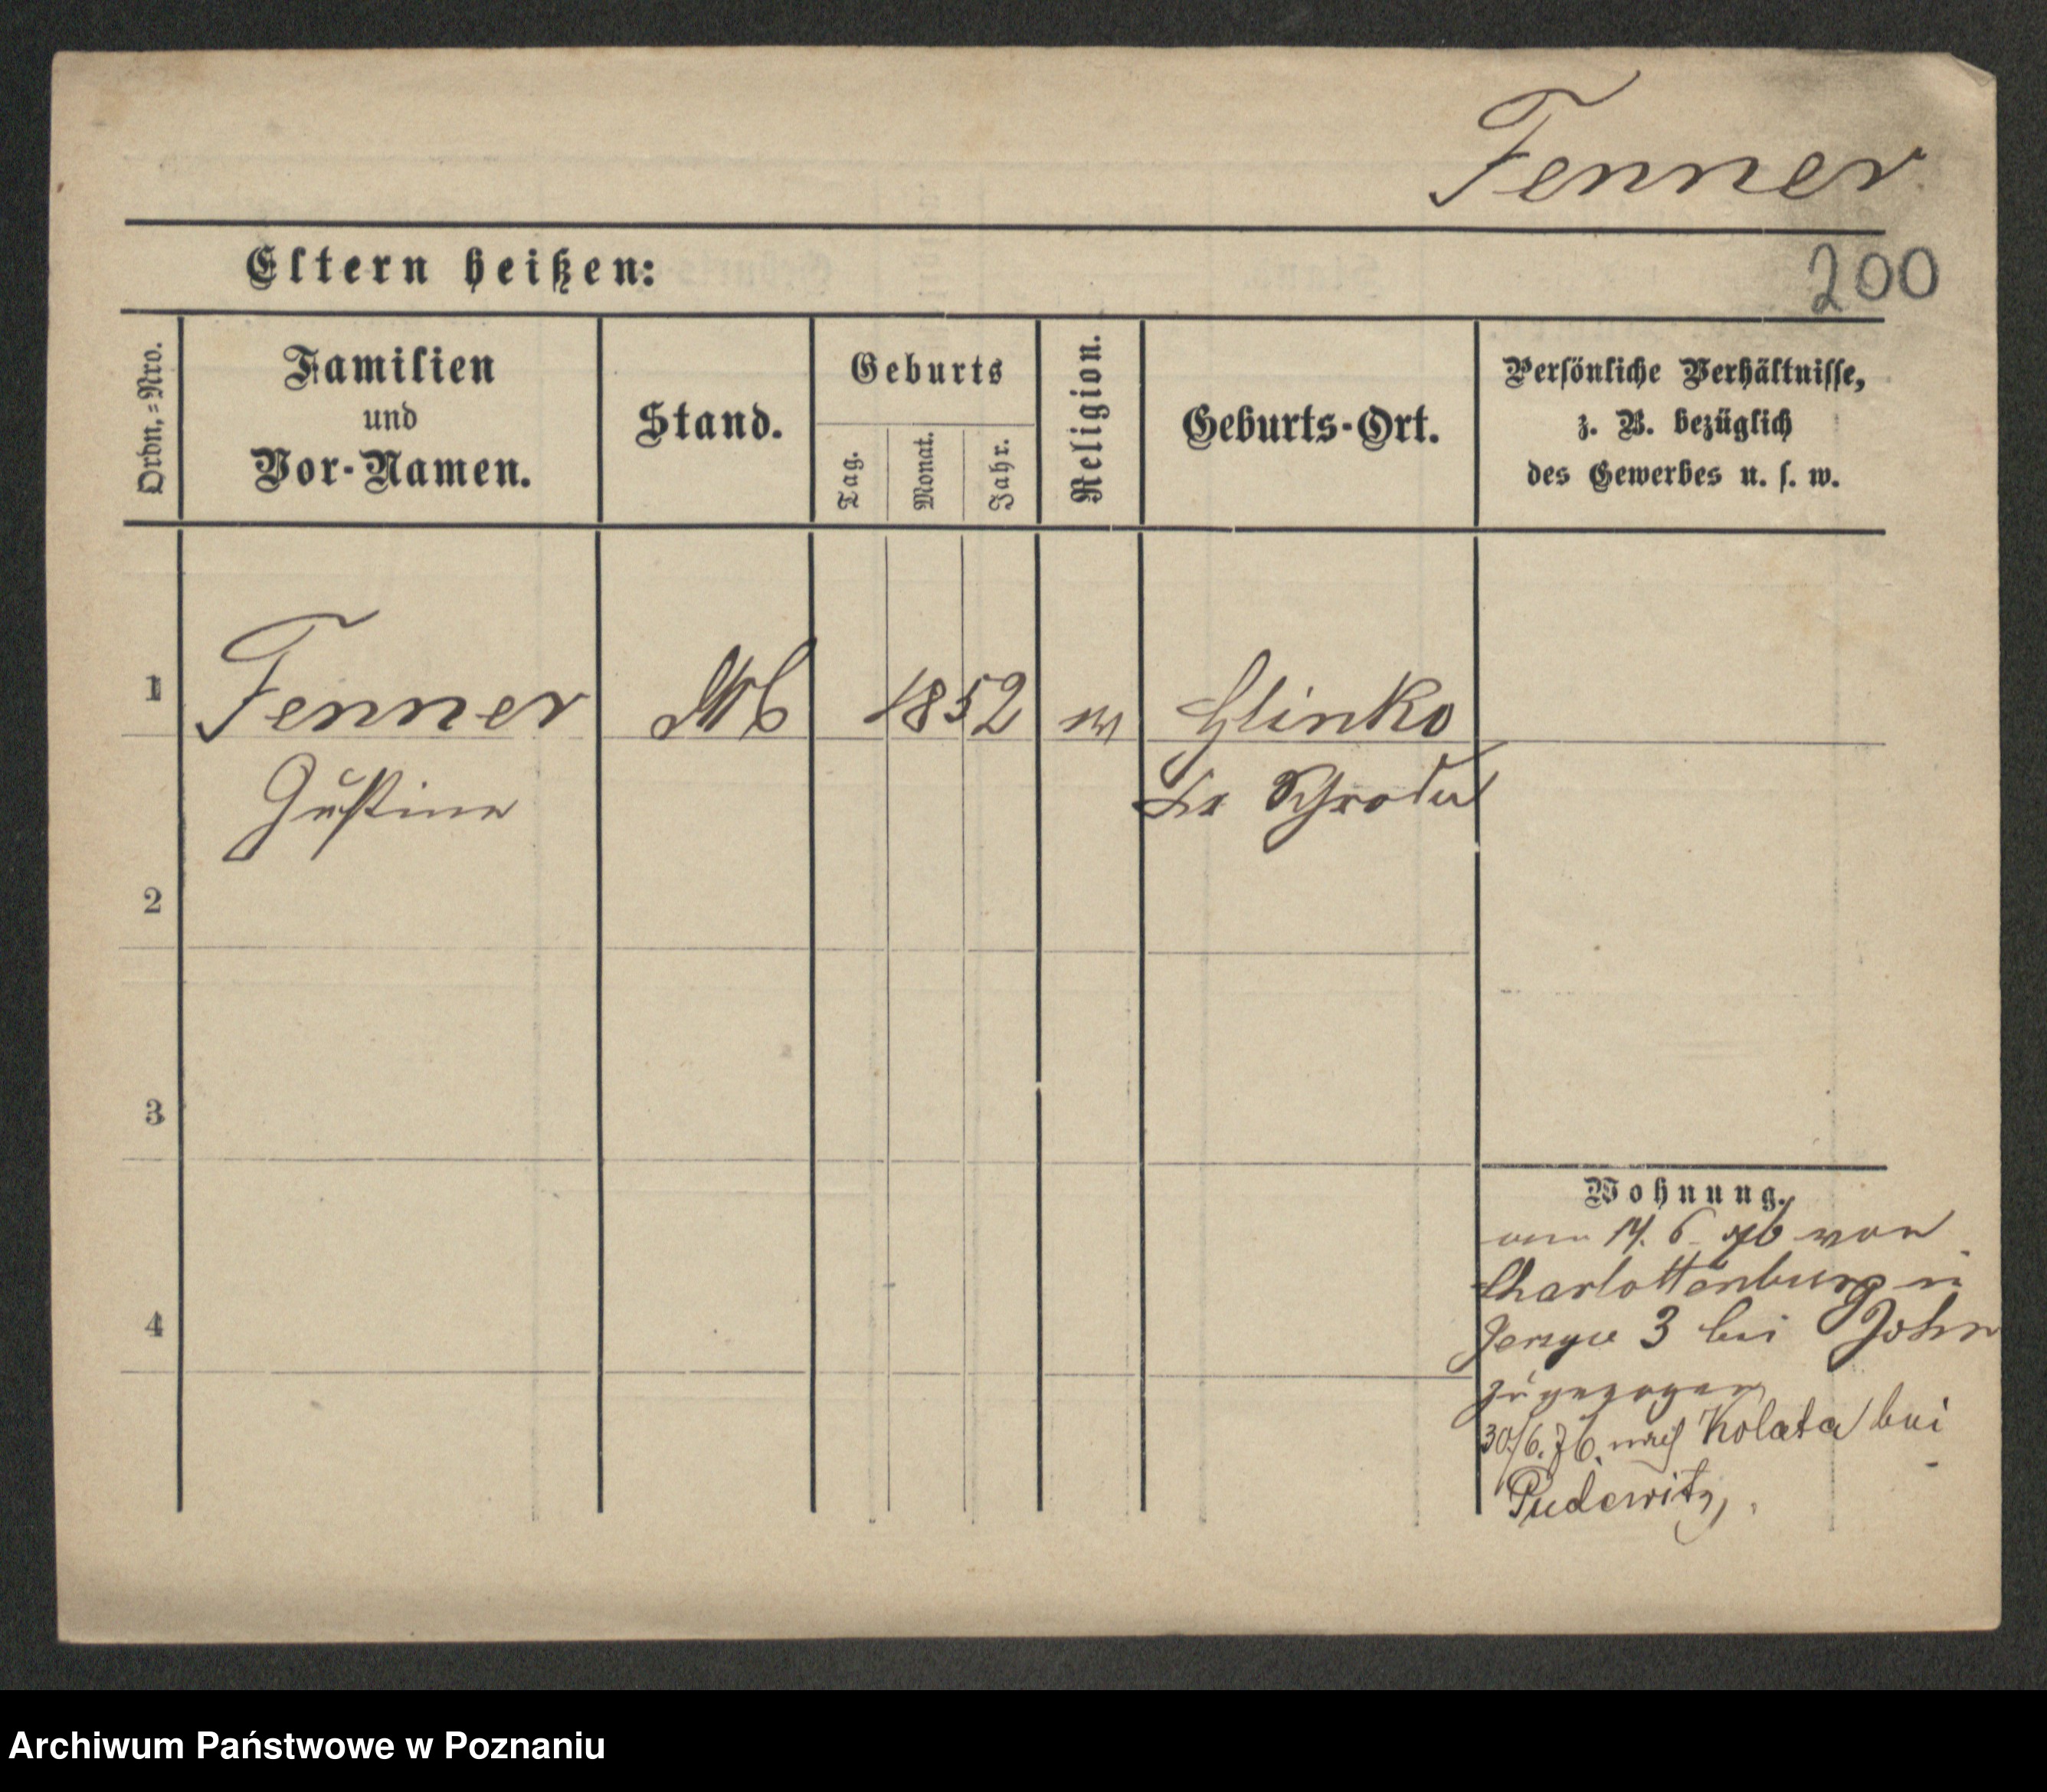 Fenner
Eltern heißen:
200
Ordn.=Nro.
Familien
und
Vor-Namen.
Stand.
Geburts
Tag.
Monat.
Jahr.
Religion.
Geburts-Ort.
Persönliche Verhältnisse,
z. B. bezüglich
des Gewerbes u. s. w.
1
Fenner
1852
Glinko
Justine
Schroda
2
3
4
Wohnung.
14. 6. 76 von
Charlottenburg n
Jerzyce 3 bei John
zugezogen
30/6. 76. nach Kolata bei
Pudewitz,
Archiwum Państwowe w Poznaniu